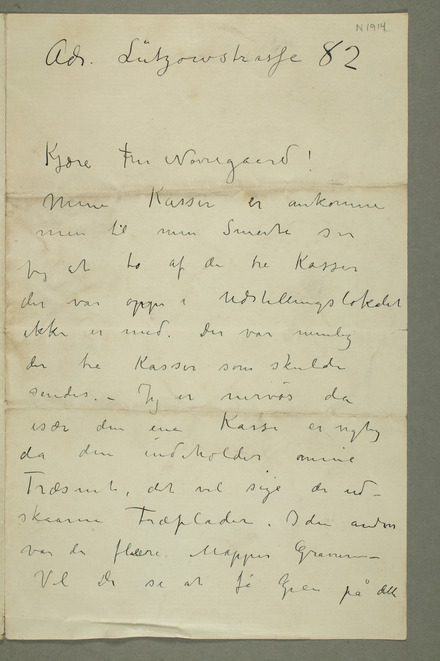 N 1914
Adr. Lützowstrasse 82
Kjære Fru Nørregaard!
Mine Kasser er ankomne
men til min Smerte ser
jeg at to af de tre Kasser
der var oppe i Udstillingslokalet
ikke er med. Der var nemlig
der tre Kasser som skulde
sendes. – Jeg er nervøs da
især den ene Kasse er vigtig
da den indeholder mine
Træsnit, det vil sige de ud-
skaarne Træplader. I den anden
var der flere Mapper Gravurer –
Vil De se at få Greie på det